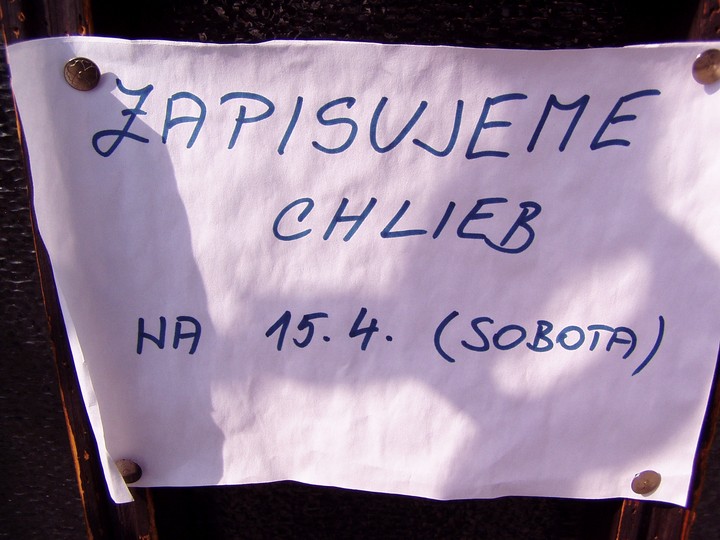 ZAPISUJEME
CHLIEB
NA 15.4. (SOBOTA)